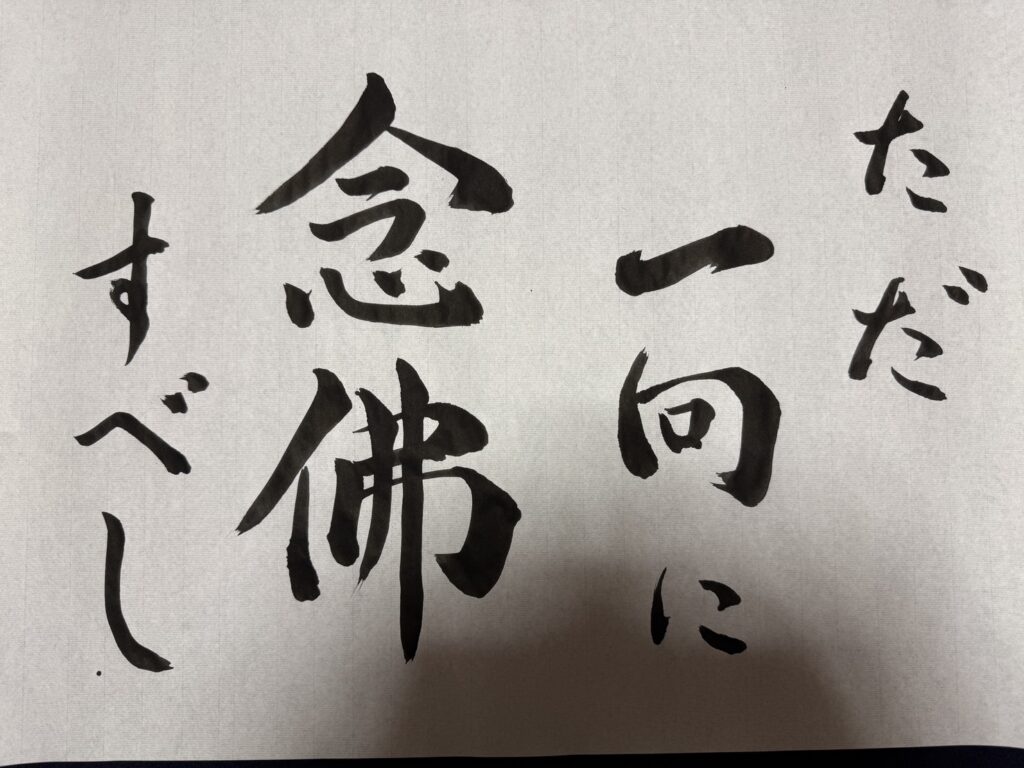 ただ
一向に
念佛
すべし